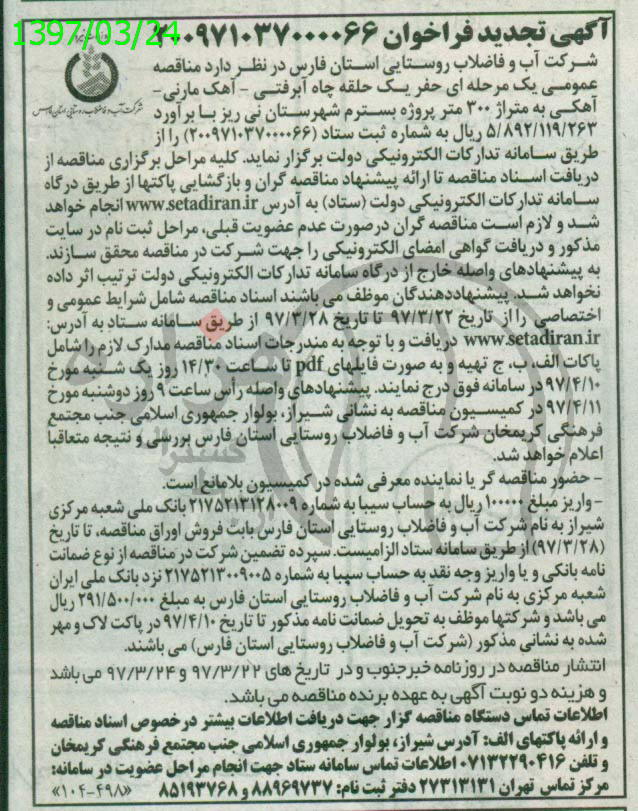 1397/03/24
آگهی تجدید فراخوان ۲۰۰۹۷۱۰۳۷۰۰۰۰۶۶
شرکت آب و فاضلاب روستایی استان فارس در نظر دارد مناقصه
شرکت آب و فاضلاب روستایی استان فارس
عمومی یک مرحله ای حفر یک حلقه چاه آبرفتی - آهک مارنی -
آهکی به متراژ ۳۰۰ متر پروژه بسترم شهرستان نی ریز با برآورد
۵/۸۹۲/۱۱۹/۲۶۳ ریال به شماره ثبت ستاد (۲۰۰۹۷۱۰۳۷۰۰۰۰۶۶) را از
طریق سامانه تدارکات الکترونیکی دولت برگزار نماید. کلیه مراحل برگزاری مناقصه از
دریافت اسناد مناقصه تا ارائه پیشنهاد مناقصه گران و بازگشایی پاکتها از طریق درگاه
سامانه تدارکات الکترونیکی دولت (ستاد) به آدرس www.setadiran.ir انجام خواهد
شد و لازم است مناقصه گران درصورت عدم عضویت قبلی، مراحل ثبت نام در سایت
مذکور و دریافت گواهی امضای الکترونیکی را جهت شرکت در مناقصه محقق سازند.
به پیشنهادهای واصله خارج از درگاه سامانه تدارکات الکترونیکی دولت ترتیب اثر داده
نخواهد شد. پیشنهاددهندگان موظف می باشند اسناد مناقصه شامل شرایط عمومی و
اختصاصی را از تاریخ ۹۷/۳/۲۲ تا تاریخ ۹۷/۳/۲۸ از طریق سامانه ستاد به آدرس:
www.setadiran.ir دریافت و با توجه به مندرجات اسناد مناقصه مدارک لازم را شامل
پاکات الف، ب، ج تهیه و به صورت فایلهای pdf تا ساعت ۱۴/۳۰ روز یک شنبه مورخ
۹۷/۴/۱۰ در سامانه فوق درج نمایند. پیشنهادهای واصله رأس ساعت ۹ روز دوشنبه مورخ
۹۷/۴/۱۱ در کمیسیون مناقصه به نشانی شیراز، بولوار جمهوری اسلامی جنب مجتمع
فرهنگی کریمخان شرکت آب و فاضلاب روستایی استان فارس بررسی و نتیجه متعاقبا
اعلام خواهد شد.
- حضور مناقصه گر یا نماینده معرفی شده در کمیسیون بلامانع است.
- واریز مبلغ ۱۰۰۰۰۰ ریال به حساب سیبا به شماره ۲۱۷۵۲۱۳۱۲۸۰۰۹ بانک ملی شعبه مرکزی
شیراز به نام شرکت آب و فاضلاب روستایی استان فارس بابت فروش اوراق مناقصه، تا تاریخ
(۹۷/۳/۲۸) از طریق سامانه ستاد الزامیست. سپرده تضمین شرکت در مناقصه از نوع ضمانت
نامه بانکی و یا واریز وجه نقد به حساب سیبا به شماره ۲۱۷۵۲۱۳۰۰۹۰۰۵ نزد بانک ملی ایران
شعبه مرکزی به نام شرکت آب و فاضلاب روستایی استان فارس به مبلغ ۲۹۱/۵۰۰/۰۰۰ ریال
می باشد و شرکتها موظف به تحویل ضمانت نامه مذکور تا تاریخ ۹۷/۴/۱۰ در پاکت لاک و مهر
شده به نشانی مذکور (شرکت آب و فاضلاب روستایی استان فارس) می باشند.
انتشار مناقصه در روزنامه خبرجنوب و در تاریخ های ۹۷/۳/۲۲ و ۹۷/۳/۲۴ می باشد
و هزینه دو نوبت آگهی به عهده برنده مناقصه می باشد.
اطلاعات تماس دستگاه مناقصه گزار جهت دریافت اطلاعات بیشتر درخصوص اسناد مناقصه
و ارائه پاکتهای الف: آدرس شیراز، بولوار جمهوری اسلامی جنب مجتمع فرهنگی کریمخان
و تلفن ۰۷۱۳۲۲۹۰۴۱۶ اطلاعات تماس سامانه ستاد جهت انجام مراحل عضویت در سامانه:
مرکز تماس تهران ۲۷۳۱۳۱۳۱ دفتر ثبت نام: ۸۸۹۶۹۷۳۷ و ۸۵۱۹۳۷۶۸ «۱۰۴-۴۹۸»